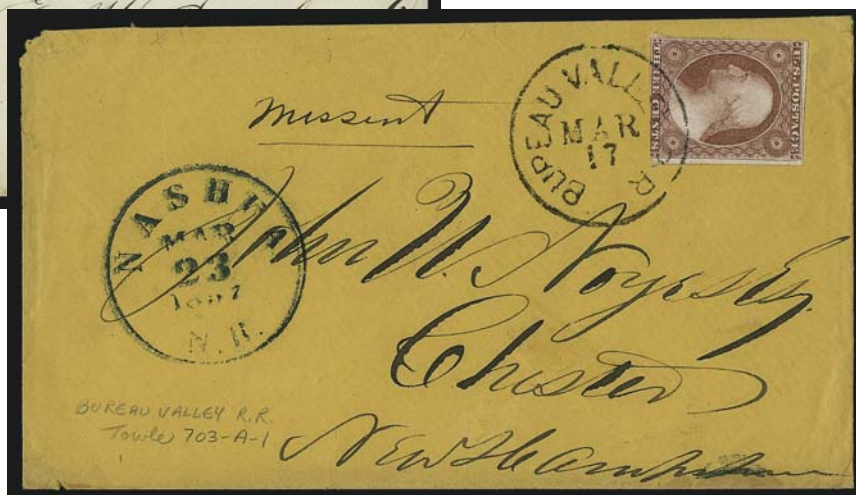 Missent
BUREAU VALLEY R.R
MAR
17
U.S. POSTAGE
THREE CENTS
NASHUA
MAR
23
1857
N.H.
John W. Noyes Esq.
Chester
New Hampshire
BUREAU VALLEY R.R.
Towle 703-A-1